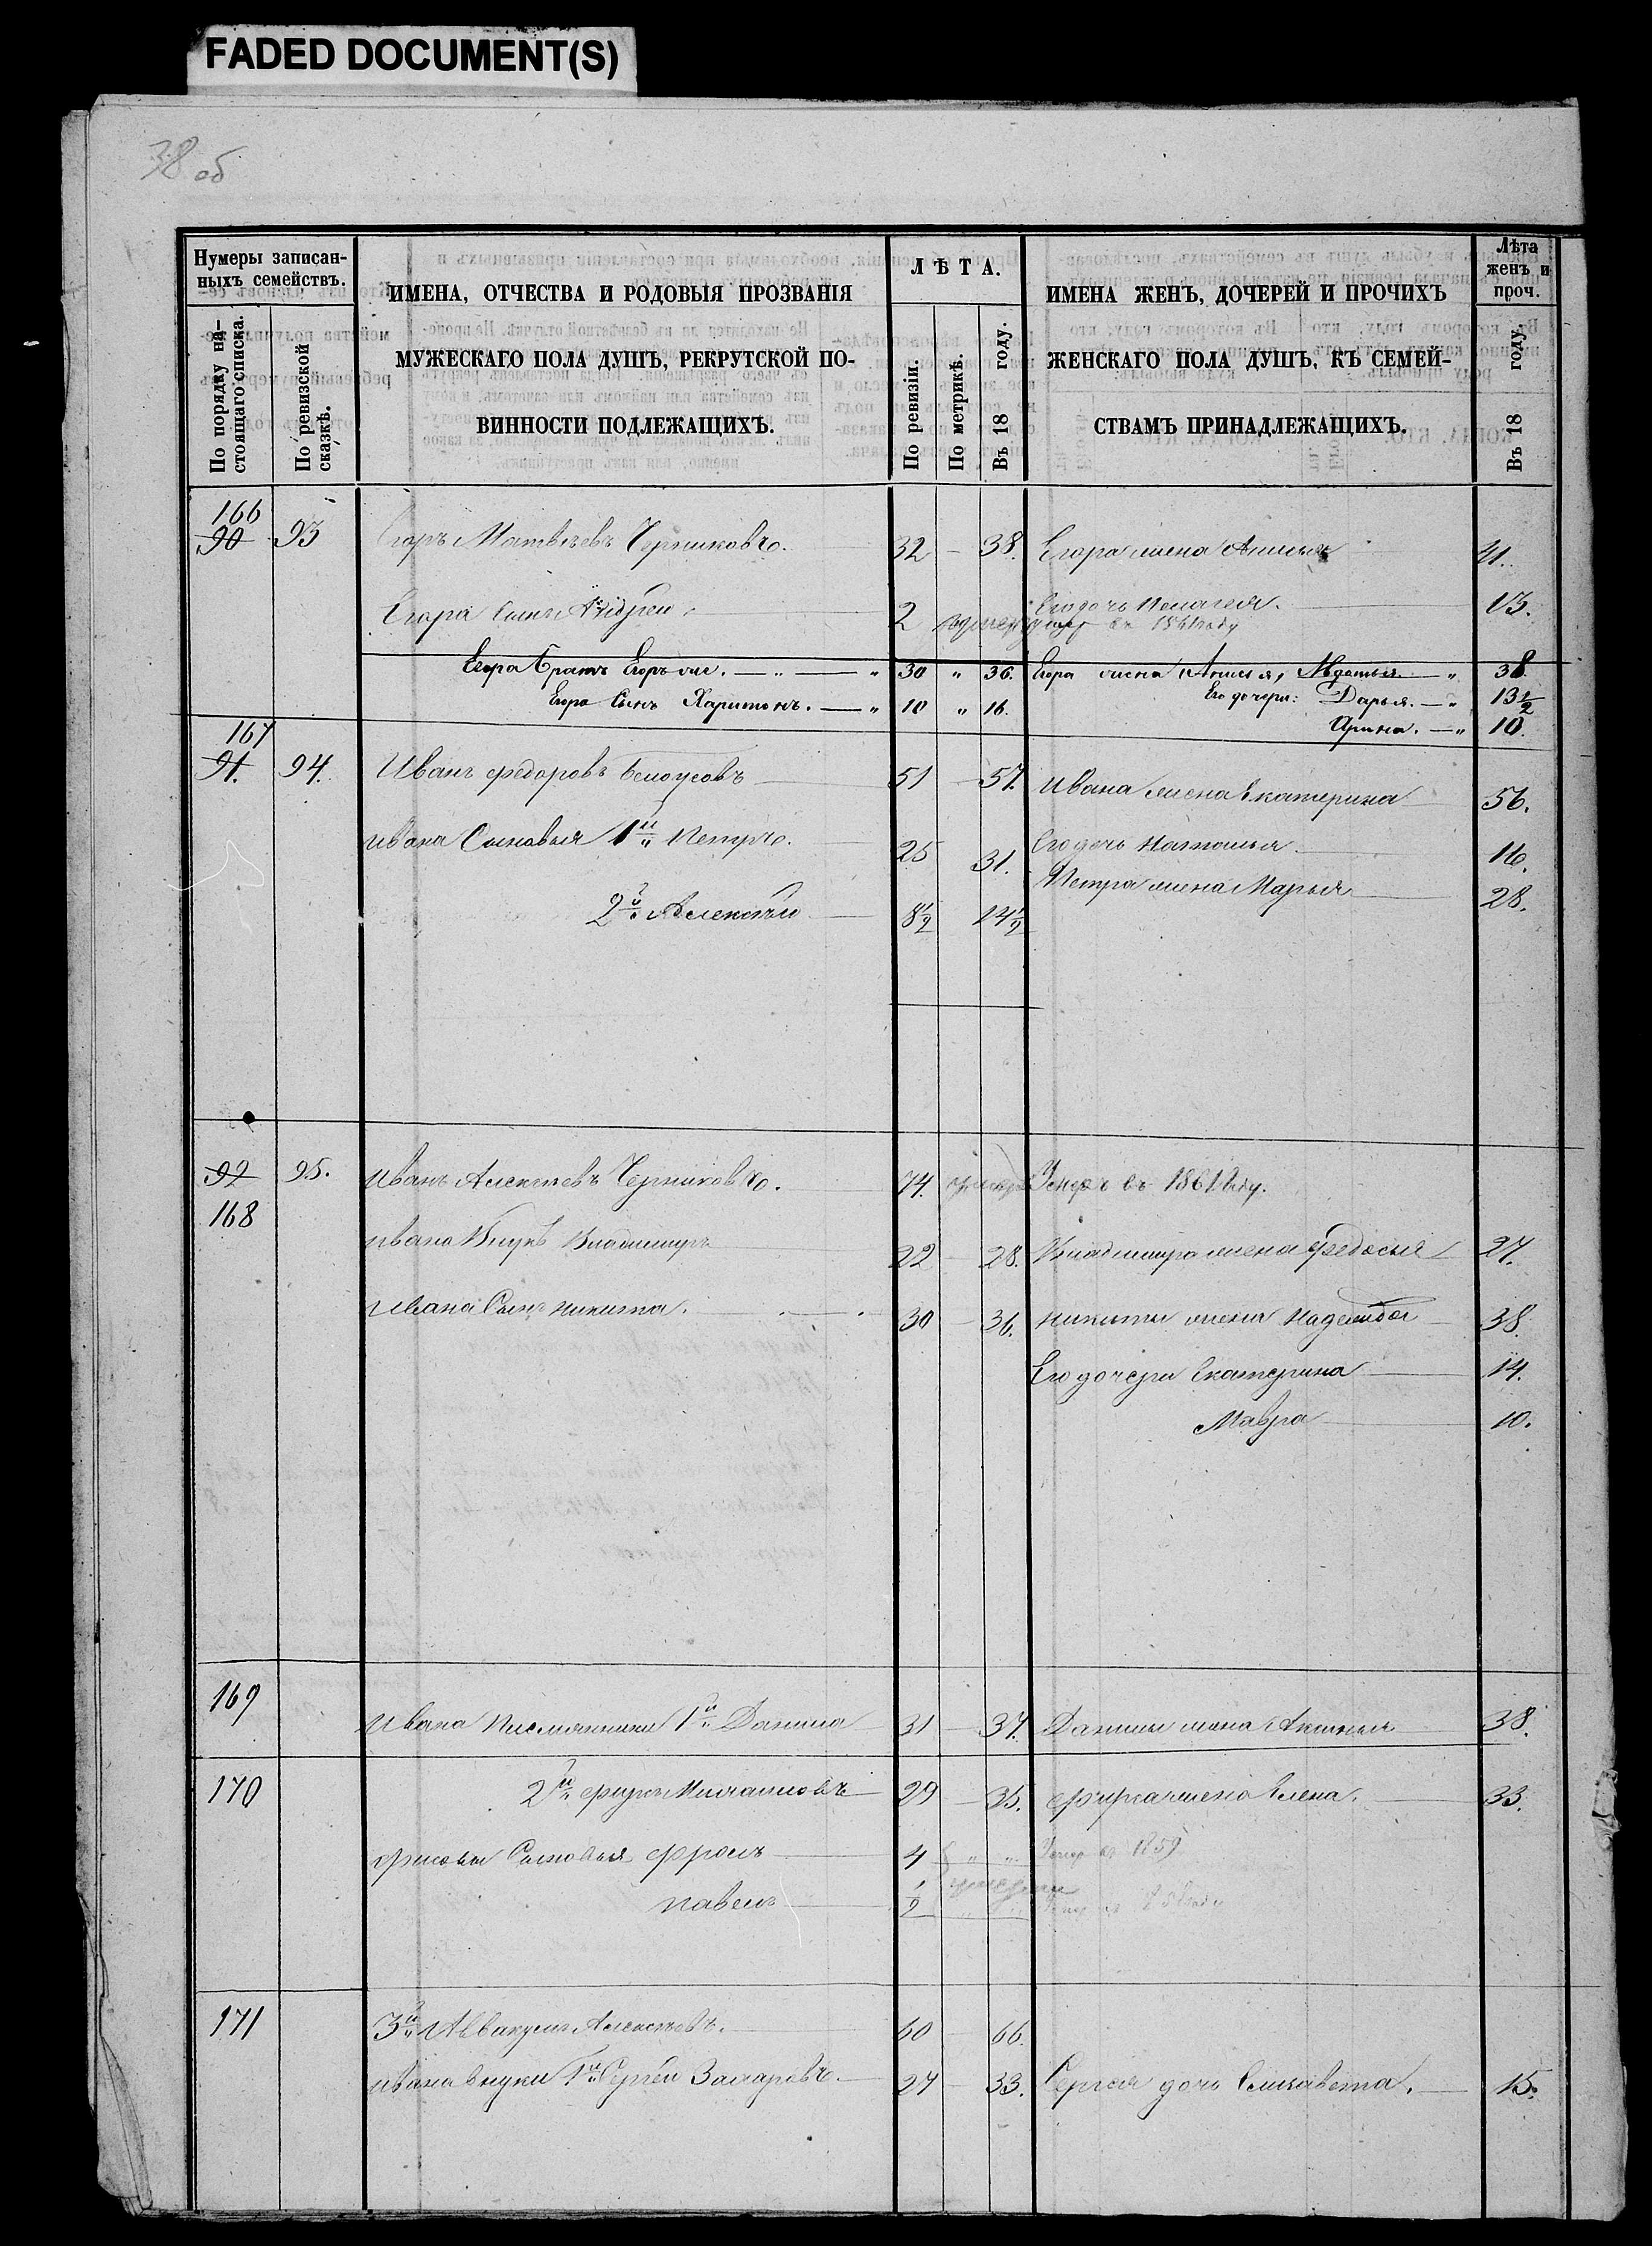 FADED DOCUMENT(S)
38 об
Нумеры записан-
ныхъ семействъ.
По порядку на-
стоящаго списка.
По ревизской
сказкѣ.
ИМЕНА, ОТЧЕСТВА И РОДОВЫЯ ПРОЗВАНІЯ
МУЖЕСКАГО ПОЛА ДУШЪ, РЕКРУТСКОЙ ПО-
ВИННОСТИ ПОДЛЕЖАЩИХЪ.
ЛѢТА.
По ревизіи.
По метрикѣ.
Въ 18 году.
ИМЕНА ЖЕНЪ, ДОЧЕРЕЙ И ПРОЧИХЪ
ЖЕНСКАГО ПОЛА ДУШЪ, КЪ СЕМЕЙ-
СТВАМЪ ПРИНАДЛЕЖАЩИХЪ.
Лѣта
женъ и
проч.
Въ 18 году.
166
90 93 Егоръ Матвѣевъ Черниковъ. 32 — 38. Егора жена Анисья 41.
Егора Сынъ Андрей. 2 Его дочь Пелагея. 13.
умер въ 1861 году
Егора Братъ Егоръ же. — „ — „ 30 „ 36. Егора жена Анисья, — „ 38.
Егора Сынъ Харитонъ. — „ 10 „ 16. Его дочери: Дарья. — „ 13 1/2
Арина. — „ 10.
167
91. 94. Иванъ Федоровъ Белоусовъ 51 — 57. Ивана жена Екатерина 56.
Ивана Сыновья 1й Петръ. 25 31. Его дочь Наталья 16.
Петра жена Марья 28.
2й Алексѣй 8 1/2 14 1/2
92 95. Иванъ Алексѣевъ Черниковъ. 74. Умеръ въ 1861 году.
168
Ивана Внукъ Владимиръ 22 — 28. Владимира жена Федосья 27.
Ивана Сынъ Никита. 30 — 36. Никиты жена Надежда 38.
Его дочери Екатерина 14.
Мавра 10.
169 Ивана Племянники 1й Данила 31 — 37. Данилы жена Аксинья 38.
170 2й Фирсъ Михайловъ 29 — 35. Фирса жена Елена. 33.
Фирсовы Сыновья Фролъ 4 „ „ Умер въ 1859
умерли
Павелъ 1/2
171 3й Аввакумъ Алексѣевъ. 60 66.
Ивана внуки 1й Сергѣй Захаровъ. 27 — 33. Сергея дочь Елизавета. 15.